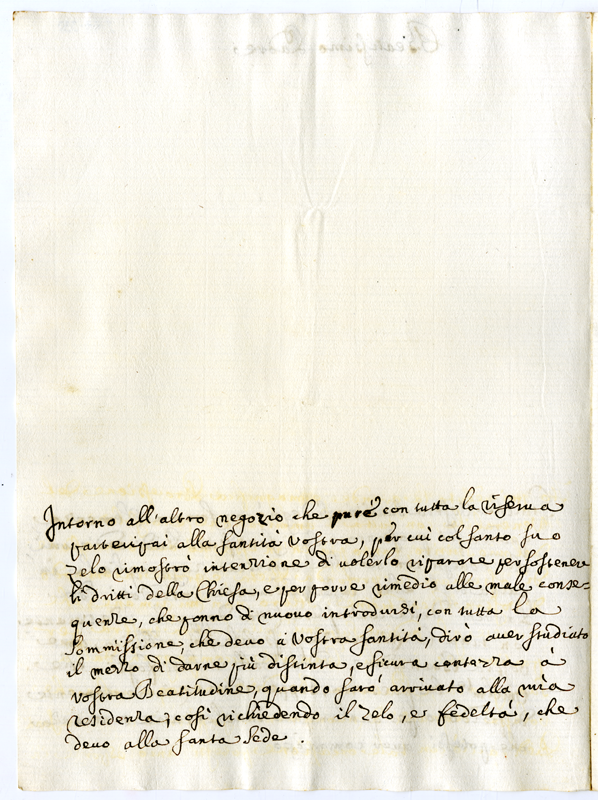 Intorno all'altro negozio che pure con tutta la riserua
partecipai alla Santità Vostra, per cui col santo suo
zelo rimostrò intenzione di uolerlo riparare per sostenere
li dritti della Chiesa, e per porre rimedio alle male conse=
quenze, che ponno di nuouo introdursi, con tutta la
Sommissione, che deuo à Vostra Santità, dirò auer studiato
il mezzo di darne più distinta, e sicura contezza à
Vostra Beatitudine, quando sarò arriuato alla mia
residenza; così richiedendo il zelo, e fedeltà, che
deuo alla Santa Sede.